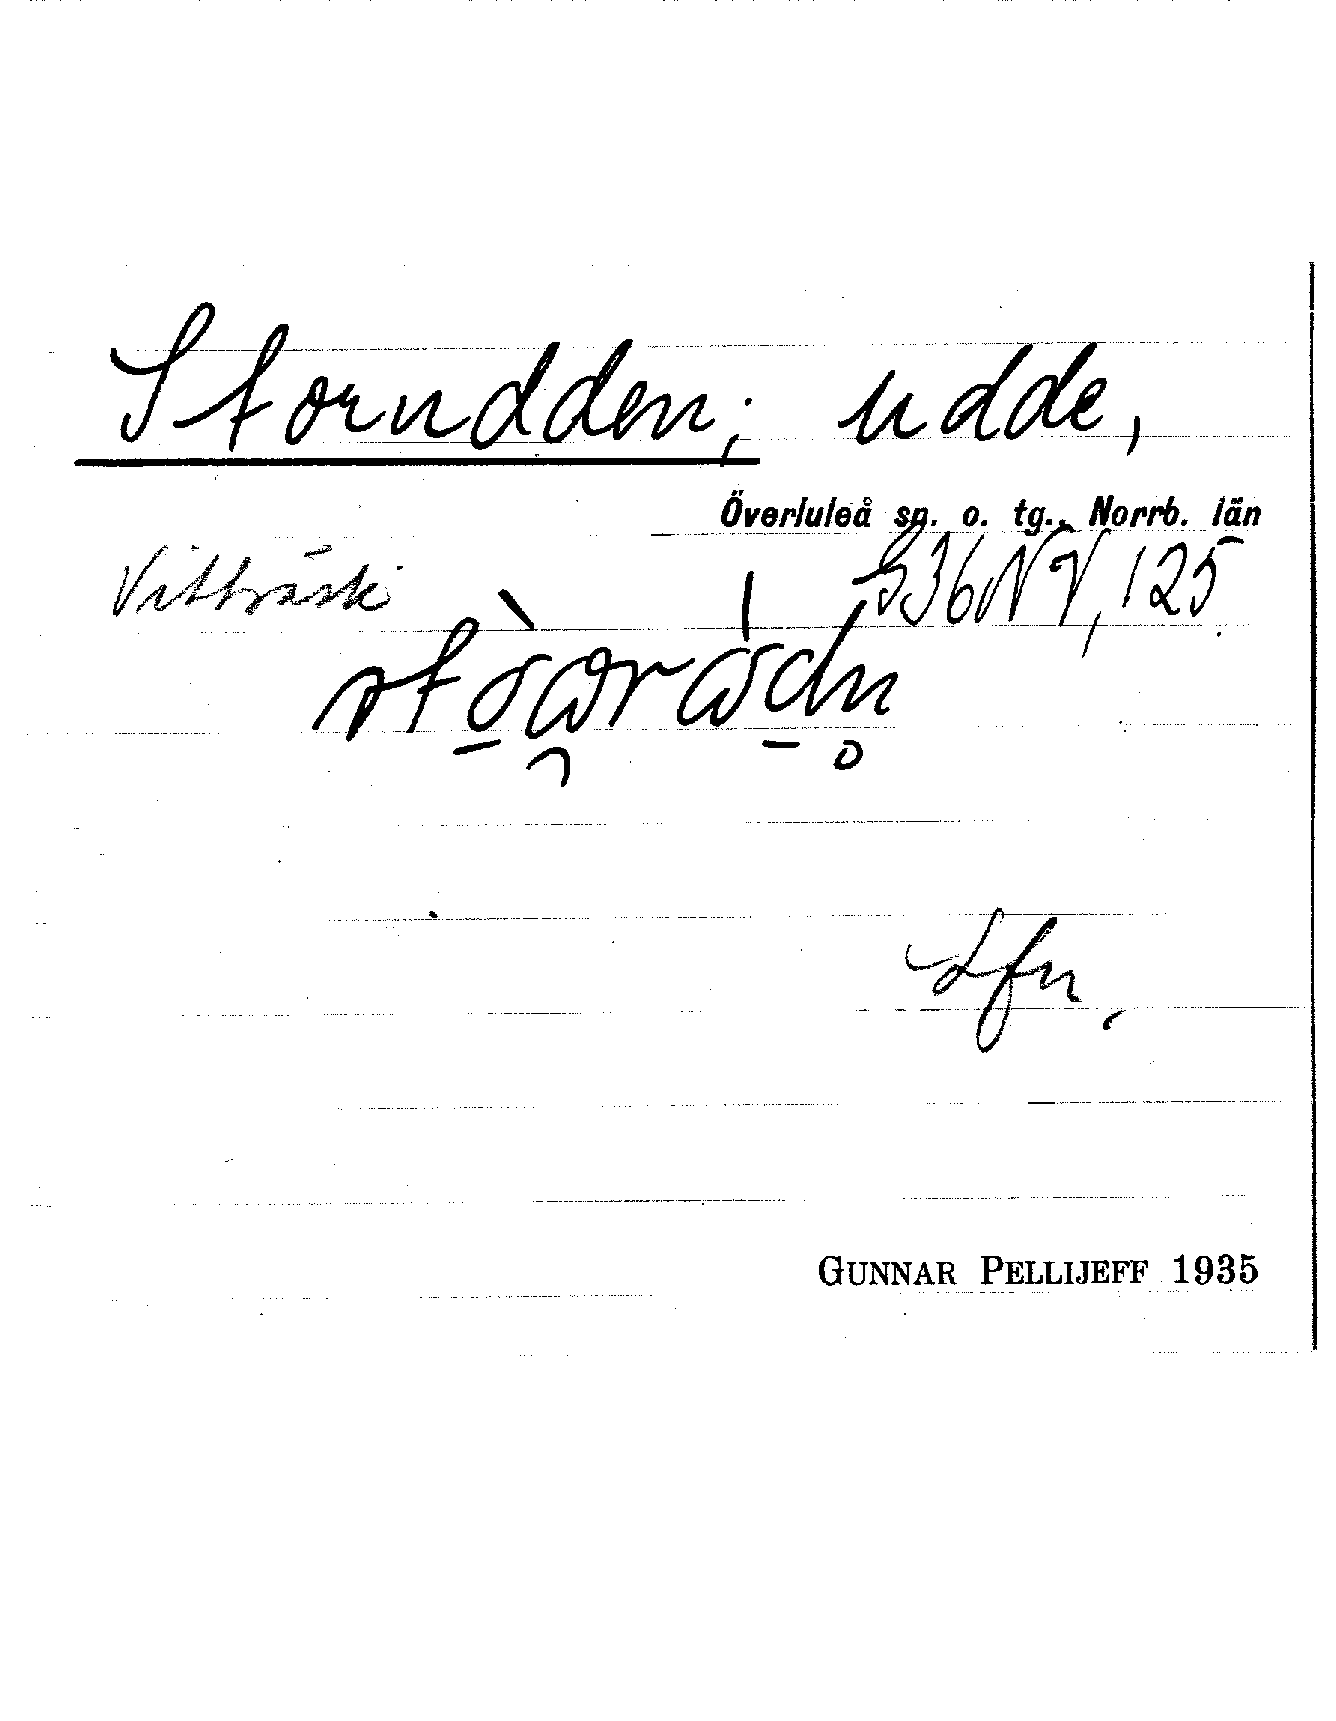 Storudden; udde,
Överluleå sp. o. tg., Norrb. län
Vitträsk S36NV, 125
Sfn,
GUNNAR PELLIJEFF 1935